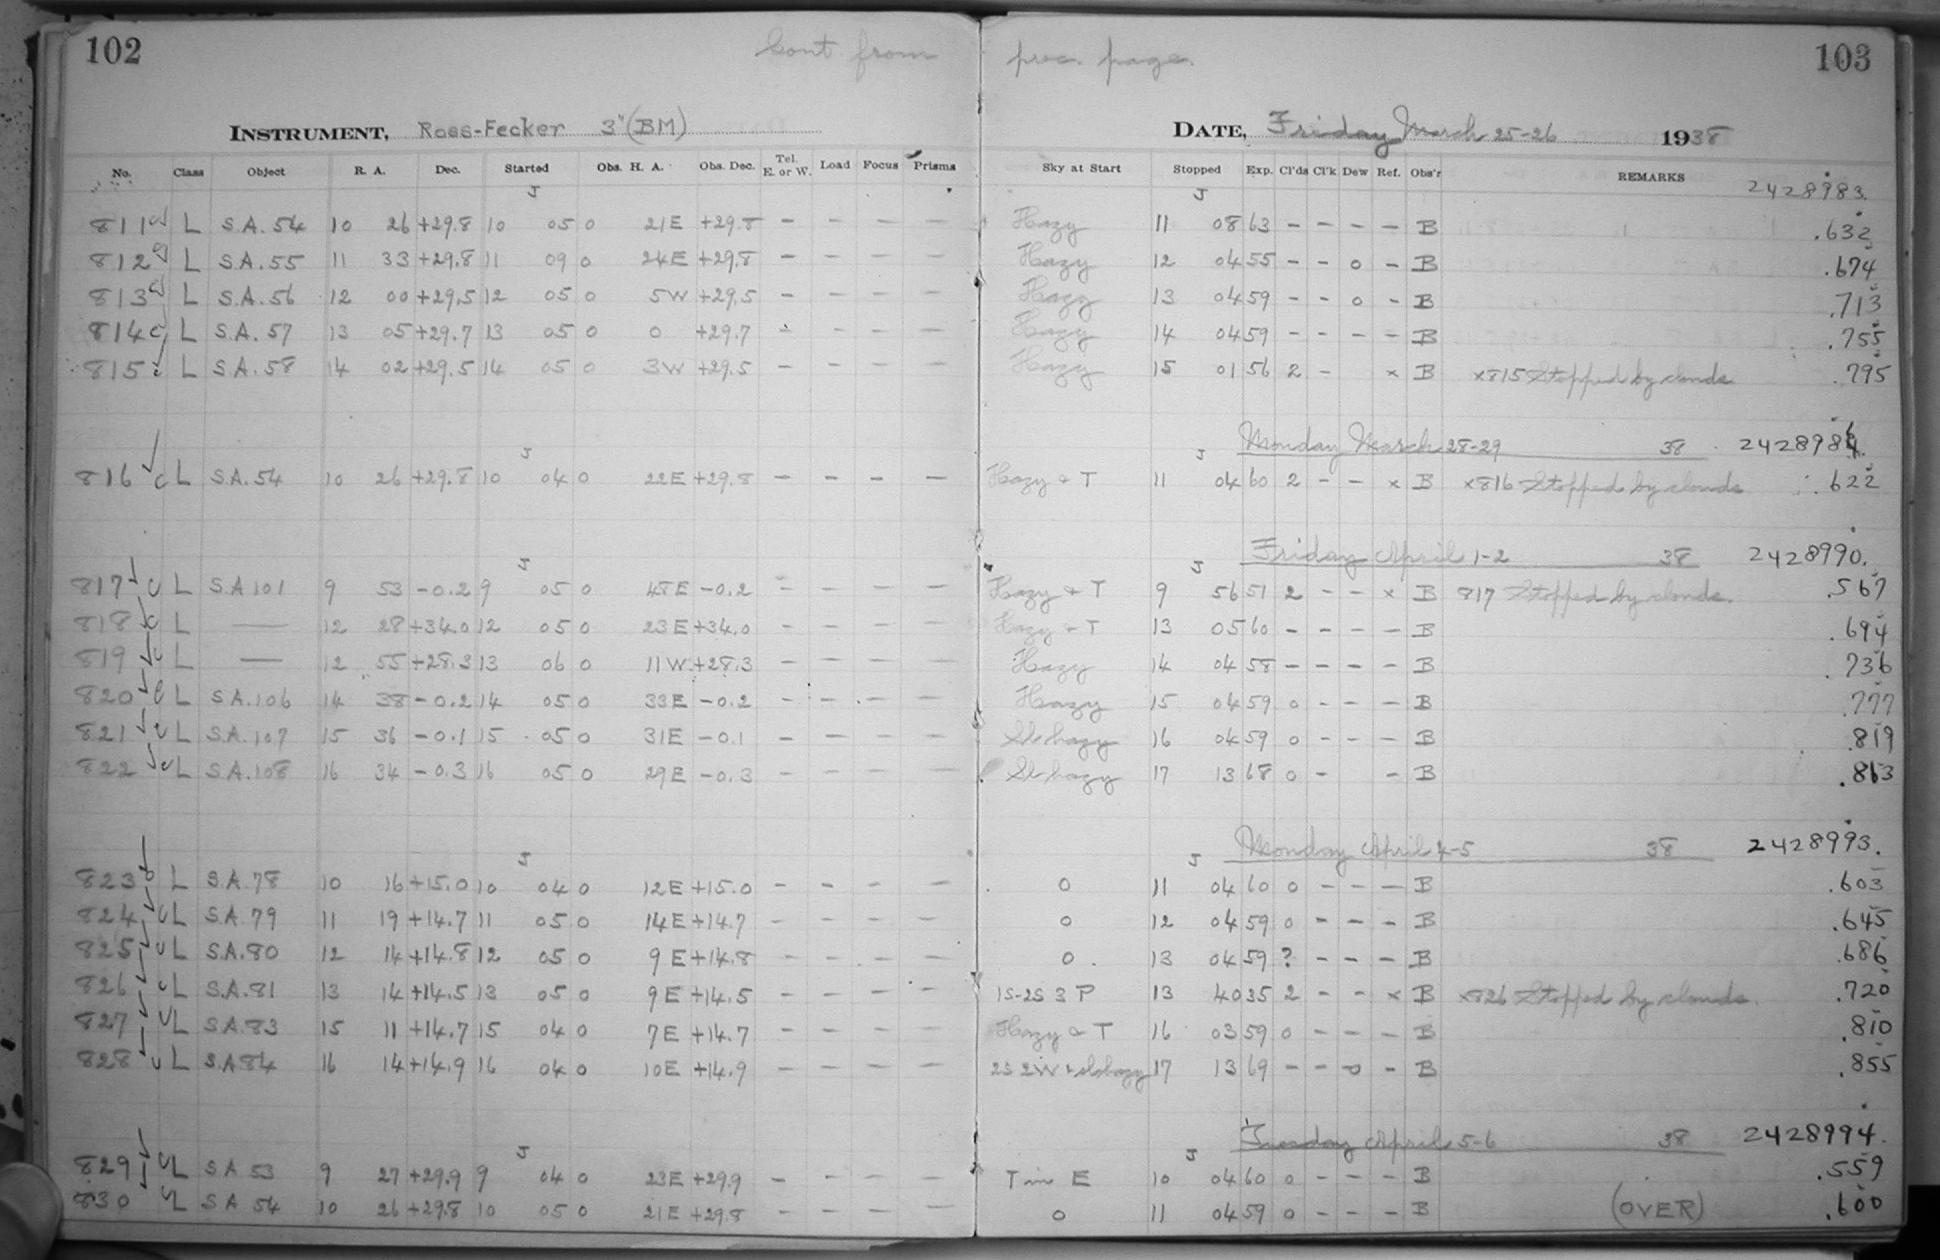 102 Cont from prec. page 103
INSTRUMENT, Ross-Fecker 3"(BM) DATE, Friday March 25-26 1938
No. Class Object R. A. Dec. Started Obs. H. A. Obs. Dec. Tel. E. or W. Load Focus Prisms Sky at Start Stopped Exp. Cl'ds Cl'k Dew Ref. Obs'r REMARKS 2428983.
J J
811 L S.A. 54 10 26 +29.8 10 05 0 21E +29.8 - - - - Hazy 11 08 63 - - - - B .632
812 L S.A. 55 11 33 +29.8 11 09 0 24E +29.8 - - - - Hazy 12 04 55 - - 0 - B .674
813 L S.A. 56 12 00 +29.5 12 05 0 5W +29.5 - - - - Hazy 13 04 59 - - 0 - B .713
814 L S.A. 57 13 05 +29.7 13 05 0 0 +29.7 - - - - Hazy 14 04 59 - - - - B .755
815 L S.A. 58 14 02 +29.5 14 05 0 3W +29.5 - - - - Hazy 15 01 56 2 - x B x815 Stopped by clouds .795
Monday March 28-29 38 2428986.
J J
816 c L S.A. 54 10 26 +29.8 10 04 0 22E +29.8 - - - - Hazy & T 11 04 60 2 - - x B x816 Stopped by clouds .622
Friday April 1-2 38 2428990.
J J
817 c L S.A 101 9 53 -0.2 9 05 0 48E -0.2 - - - - Hazy & T 9 56 51 2 - - x B 817 Stopped by clouds. .567
818 c L — 12 28 +34.0 12 05 0 23E +34.0 - - - - Hazy & T 13 05 60 - - - - B .694
819 c L — 12 55 +28.3 13 06 0 11W +28.3 - - - - Hazy 14 04 58 - - - - B .736
820 c L S A. 106 14 38 -0.2 14 05 0 33E -0.2 - - - - Hazy 15 04 59 0 - - - B .777
821 c L S.A. 107 15 36 -0.1 15 05 0 31E -0.1 - - - - Sl hazy 16 04 59 0 - - - B .819
822 c L S A. 108 16 34 -0.3 16 05 0 29E -0.3 - - - - Sl hazy 17 13 68 0 - - B .863
Monday April 4-5 38 2428993.
J J
823 L S.A. 78 10 16 +15.0 10 04 0 12E +15.0 - - - - 0 11 04 60 0 - - - B .603
824 c L S.A. 79 11 19 +14.7 11 05 0 14E +14.7 - - - - 0 12 04 59 0 - - - B .645
825 c L S.A. 80 12 14 +14.8 12 05 0 9E +14.8 - - - - 0 13 04 59 ? - - - B .686
826 c L S.A. 81 13 14 +14.5 13 05 0 9E +14.5 - - - - 1S-2S 3 P 13 40 35 2 - - x B x826 Stopped by clouds. .720
827 c L S.A. 83 15 11 +14.7 15 04 0 7E +14.7 - - - - Hazy & T 16 03 59 0 - - - B .810
828 c L S.A 84 16 14 +14.9 16 04 0 10E +14.9 - - - - 2S 2W + sl hazy 17 13 69 - - 0 - B .855
Tuesday April 5-6 38 2428994.
J J
829 c L S A 53 9 27 +29.9 9 04 0 23E +29.9 - - - - T in E 10 04 60 0 - - - B .559
830 c L S A 54 10 26 +29.8 10 05 0 21E +29.8 - - - - 0 11 04 59 0 - - - B (OVER) .600